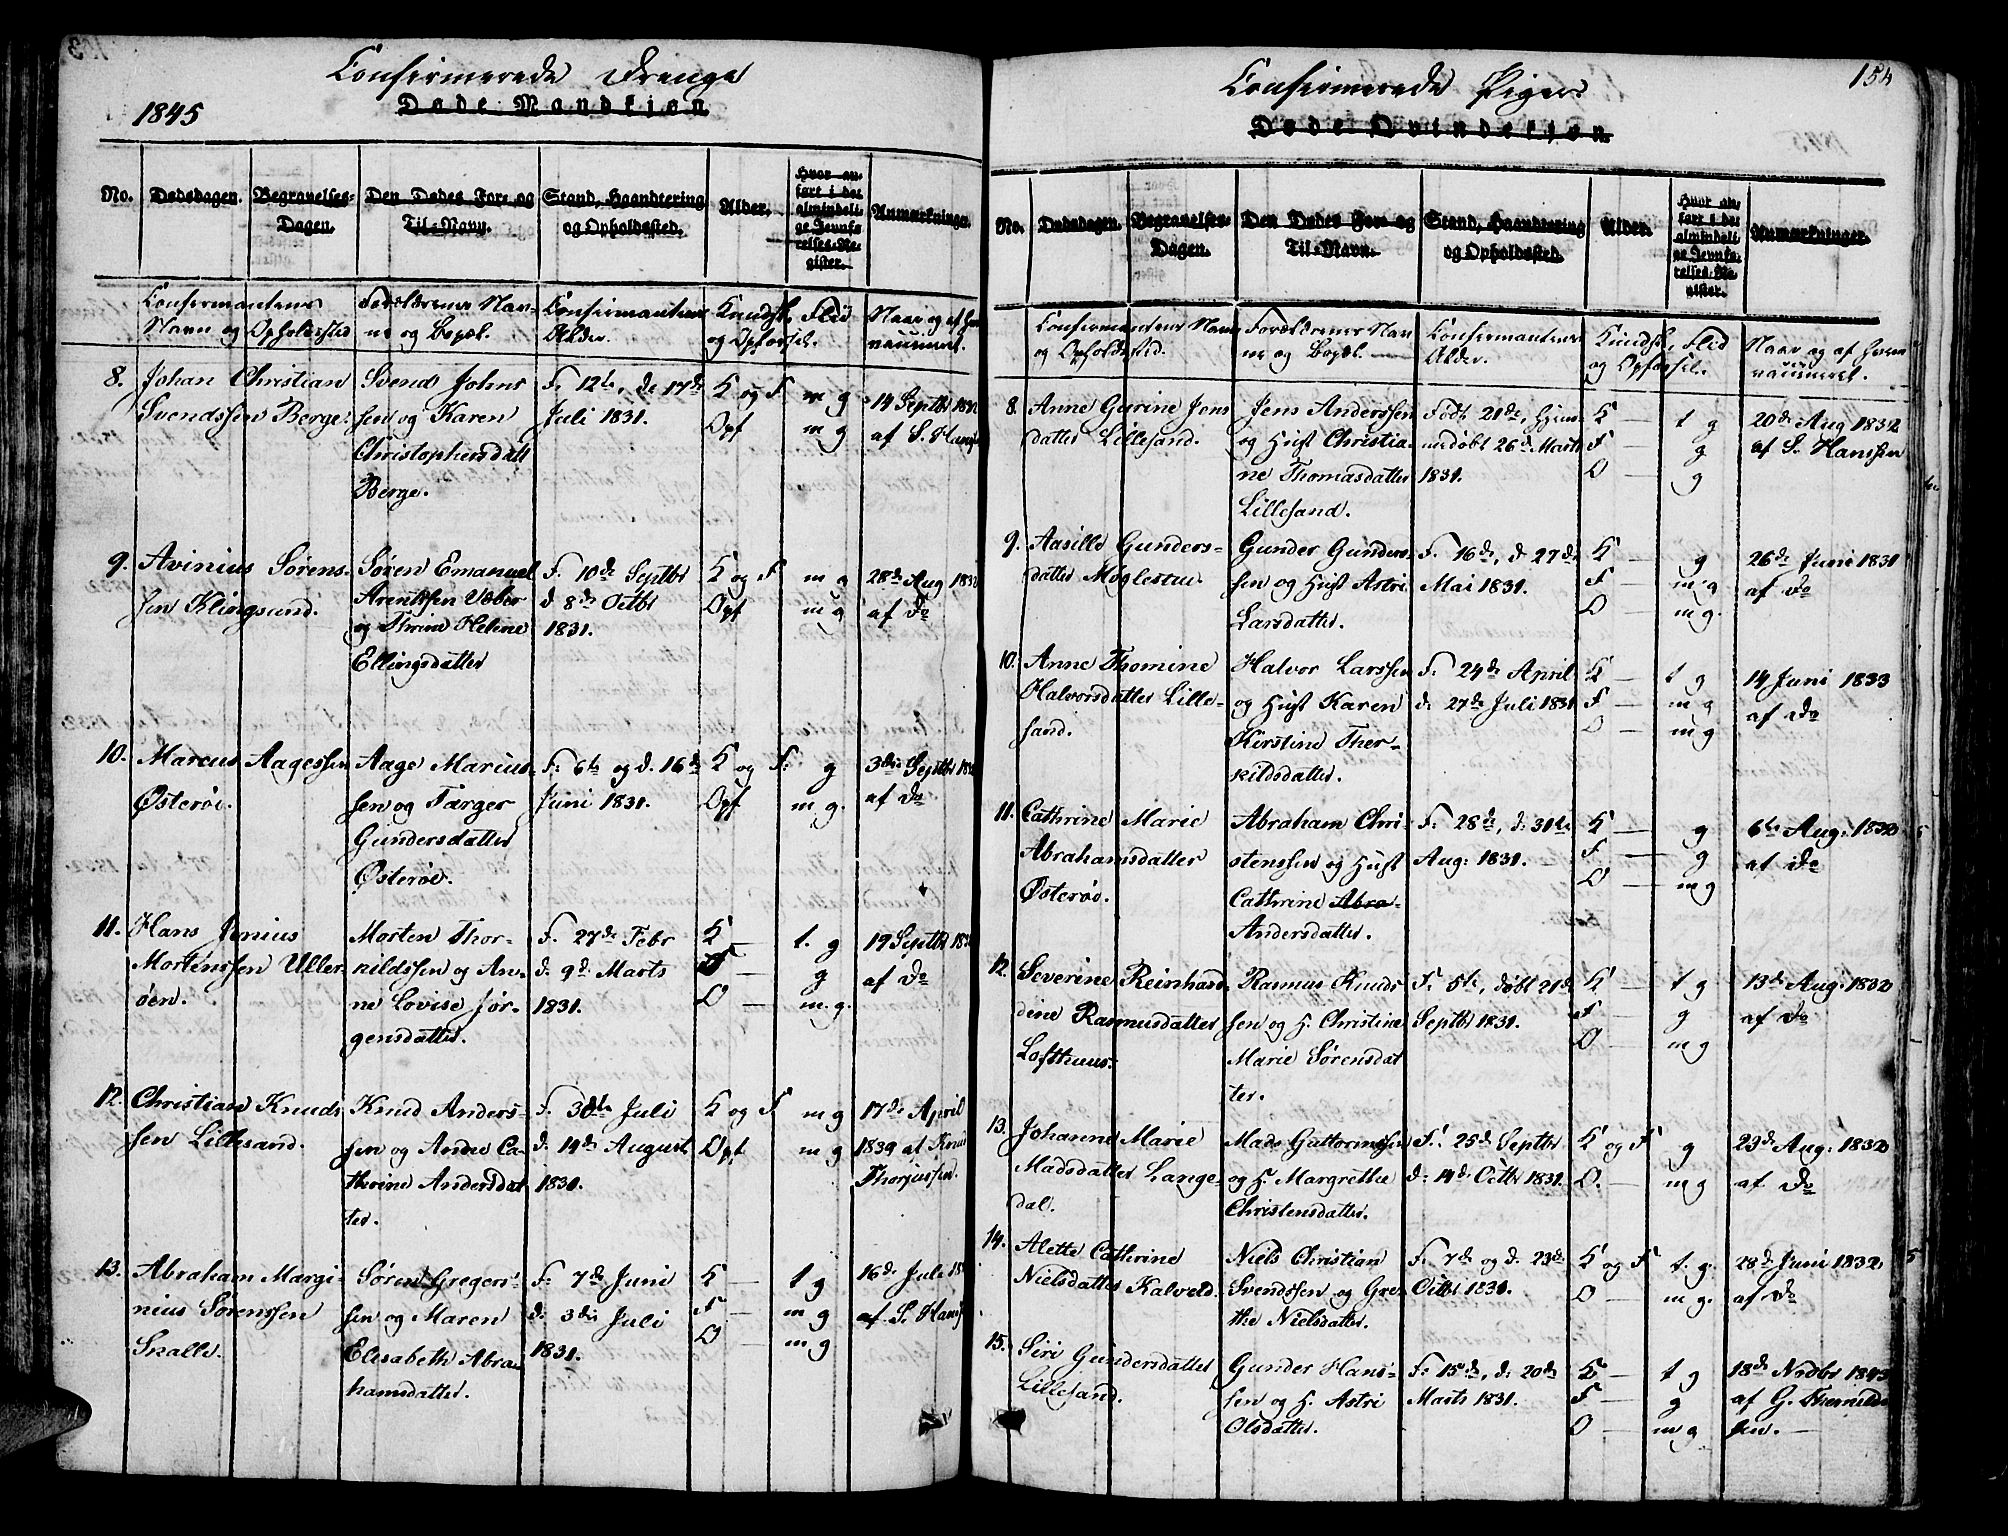 1845
Confirmerede Drenge
Døde Mandkjøn
No.
Dødsdagen.
Begravelses-
Dagen.
Den Dødes For- og
Til-Navn.
Stand, Haandtering
og Opholdssted.
Alder.
Hvor an-
ført i det
almindeli-
ge Jevnfø-
relses-Re-
gister.
Anmærkninger.
Confirmantens
Navn og Opholdssted
Forældrenes Nav-
ne og Bopæl.
Confirmantens
Alder.
Kundsk. Flid
og Opførsel.
Naar og af hvem
vaccineret.
8. Johan Christian
Svendssen Berge.
Svend Johns
sen og Karen
Christophersdatt
Berge.
F. 12te, d. 17de
Juli 1831.
K og F m g
Opf m g
14 Septbr 1832
af S. Hans
9. Avinius Sørens-
sen Klingsund.
Søren Emanuel
Arentssen Væber
og Thrine Helene
Ellingsdatter
F. 10de Septbr
d 8de Octbr
1831.
K og F m g
Opf m g
28de Aug 1832
af Do
10. Marcus Aagessen
Østerøe.
Aage Marius
sen og Targer
Gundersdatter
Østerøe.
F. 6te og d. 16de
Juni 1831.
K og F. g
Opf m g.
3die Septbr
af Do
11. Hans Jenius
Mortenssen Uller-
øen.
Morten Thor-
kildssen og An-
ne Lovise Jør-
gensdatter.
F. 27de Febr
d. 9de Marts
1831.
K — t. g
F — g
O — m. g.
19 Septbr
af Do
12. Christian Knuds
sen Lillesand.
Knud Anders-
sen og Anne Ca-
thrine Andersdat
ter.
F. 30te Juli
d. 14de August
1831.
K og F m g
Opf m g
17de April
1839 af Knud
Thorjussen.
13. Abraham Margi-
nius Sørenssen
Skalle.
Søren Gregers-
sen og Maren
Elisabeth Abra-
hamsdatter.
F. 7de Juni
d. 3die Juli
1831.
K — t g
F — m g
O — m g
16de Juli
af S. Hans
154
Confirmerede Piger
Døde Qvindekjøn.
No.
Dødsdagen.
Begravelses-
Dagen.
Den Dødes For- og
Til-Navn.
Stand, Haandtering
og Opholdssted.
Alder.
Hvor an-
ført i det
almindeli-
ge Jevnfø-
relses-Re-
gister.
Anmærkninger.
Confirmantens Navn
og Opholdssted.
Forældrenes Nav-
ne og Bopæl. —
Confirmantens
Alder.
Kundsk., Flid
og Opførsel.
Naar og af hvem
vaccineret.
8. Anne Gurine Jens
datter Lillesand.
Jens Anderssen
og Hust Christia-
ne Thomasdatter
Lillesand.
Født 21de, hjem-
medøbt 26de Marts
1831.
K — t g
F — g
O — g
20de Aug 1832
af S. Hanssen
9. Aasille Gunders-
datter Møglestue.
Gunder Gunders-
sen og Hust Astri
Larsdatter.
F. 16de, d. 27de
Mai 1831.
K — g
F — m g
O — m g.
26de Juni 1831
af Do
10. Anne Thomine
Halvorsdatter Lille-
sand.
Halvor Larssen
og Hust Karen
Kirstine Ther-
kildsdatter.
F. 24de April
d. 27de Juli 1831
K — t g
F — m g
O — m g
14 Juni 1833
af Do
11. Cathrine Marie
Abrahamsdatter
Østerøe.
Abraham Chri-
stenssen og Hust
Cathrine Abra-
Andersdatter.
F. 28de, d. 31te
Aug: 1831. —
K — g
F — g
O — m g
6te Aug: 1832
af Do
12. Severine Reinhar-
dine Rasmusdatter
Lofthuus.
Rasmus Knuds
sen og H. Christine
Marie Sørensdat
ter.
F. 5te, døbt 21de
Septbr 1831.
K — t g
F — g
O — m g
13de Aug: 1832
af Do
13. Johanne Marie
Madsdatter Lange-
dal.
Mads Guttormssen
og H. Margrethe
Christensdatter.
F. 25de Septbr
d: 14de Octbr 1831.
K og F g
O. — m g
23de Aug: 1832
af Do
14. Alette Cathrine
Nielsdatter Kalveld.
Niels Christian
Svendssen og Gre-
the Nielsdatter.
F. 7de og d. 23de
Octbr 1831.
K og F t. g.
O — m g.
28de Juni 1832
af Do
15. Siri Gundersdatter
Lillesand.
Gunder Hans-
sen og H. Astri
Olsdatter.
F. 15de, d. 20de
Marts 1831.
K — t g
F — g
O — m g
18de Novbr 1843
af G. Thorkilds-
sen. —